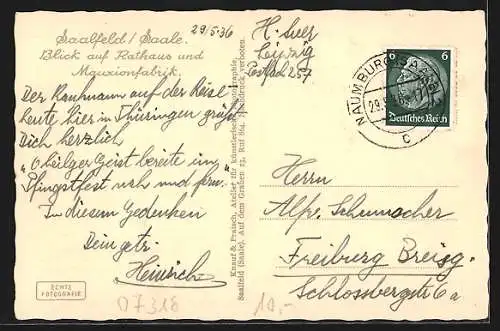 Saalfeld / Saale.
Blick auf Rathaus und
Mauxionfabrik.
29/5.36
Der Kaufmann auf der Reise
heute hier in Thüringen grüßt
Dich herzlich
"O heilger Geist bereite im
Pfingstfest nah und fern."
In diesem Gedenken
Dein getr.
Heinrich
ECHTE
FOTOGRAFIE
07318
10,-
Knauf & Fraisch, Atelier für künstlerische Photographie,
Saalfeld (Saale), Auf dem Graben 13, Ruf 864. Nachdruck verboten.
H.
Leipzig
Postfach 257
NAUMBURG (SAALE)
29.5.36
c
6
6
Deutsches Reich
Herrn
Alfr. Schumacher
Freiburg Breisg.
Schlossbergstr 6a